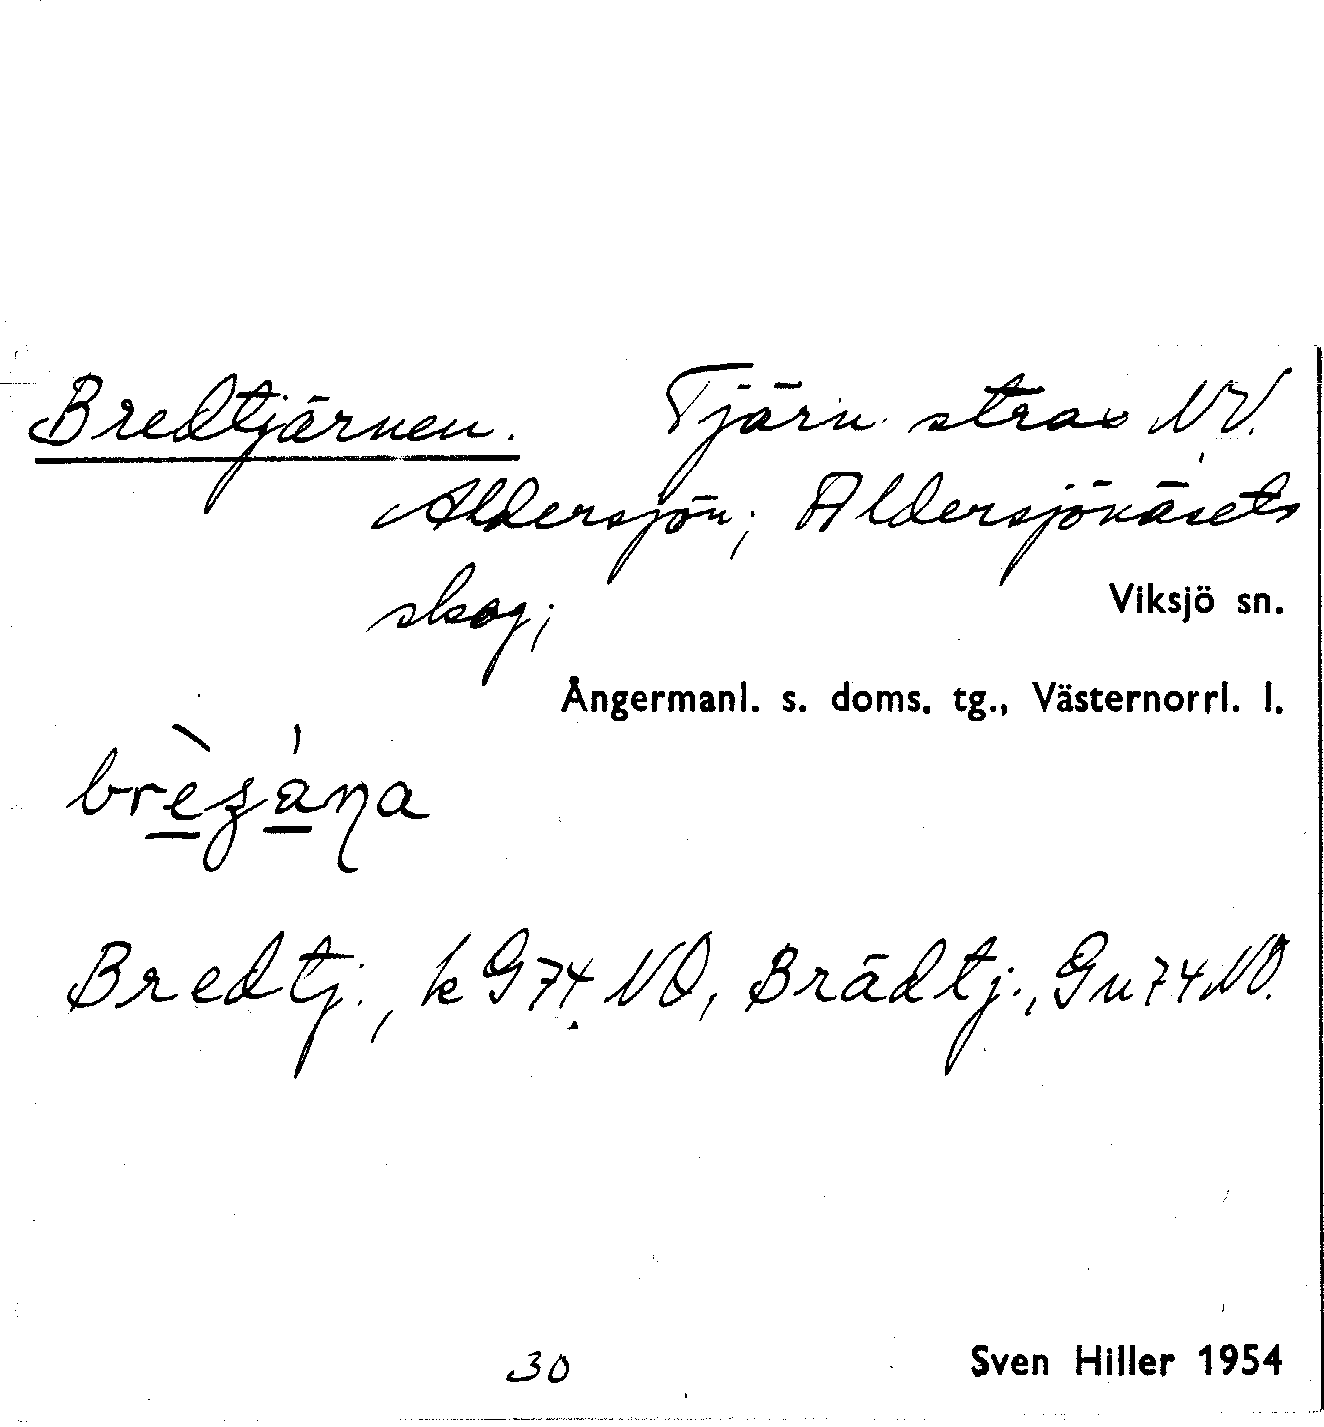 Bredtjärnen. Tjärn strax NV.
Aldersjön; Aldersjönäsets
skog;
Viksjö sn.
Ångermanl. s. doms. tg., Västernorrl. l.
Bredtj., k G74 NO, Brädtj., Gu74NO.
30
Sven Hiller 1954